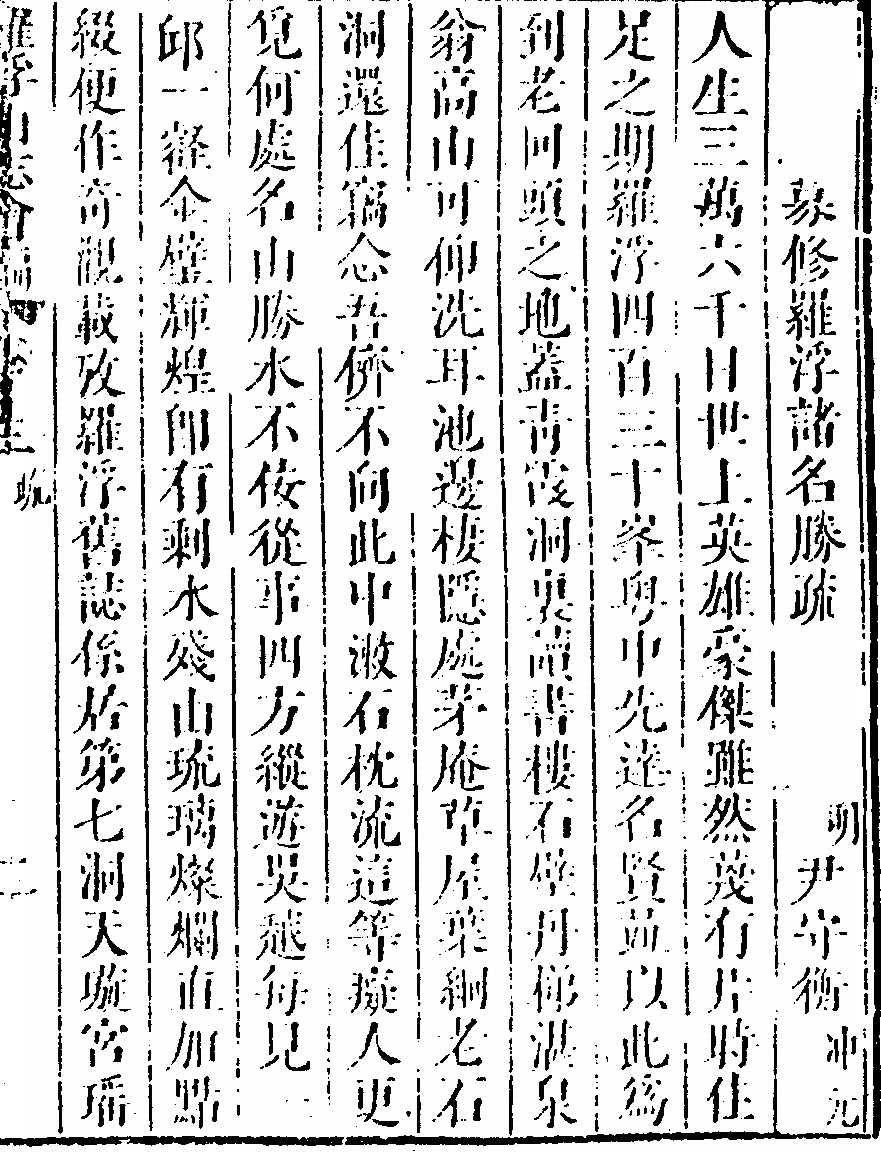 募修羅浮諸名勝疏
明尹守衡冲元
人生三萬六千日世上英雄豪傑雖然蔑有片時佳
足之期羅浮四百三十峯粵中先達名賢茲以此為
到老回頭之地蓋青霞洞裏讀書樓石壁丹邱湛泉
翁高山可仰洗耳池邊棲隱處茅庵草屋葉絅老石
洞還佳竊念吾儕不向此中漱石枕流這等癡人更
覓何處名山勝水不佞從事四方縱遊吳越每見一
邱一壑金璧輝煌即有剩水殘山琉璃燦爛直加點
綴便作奇觀載攷羅浮舊誌係居第七洞天璇宮瑤
羅浮山志會編 卷十三 疏
二